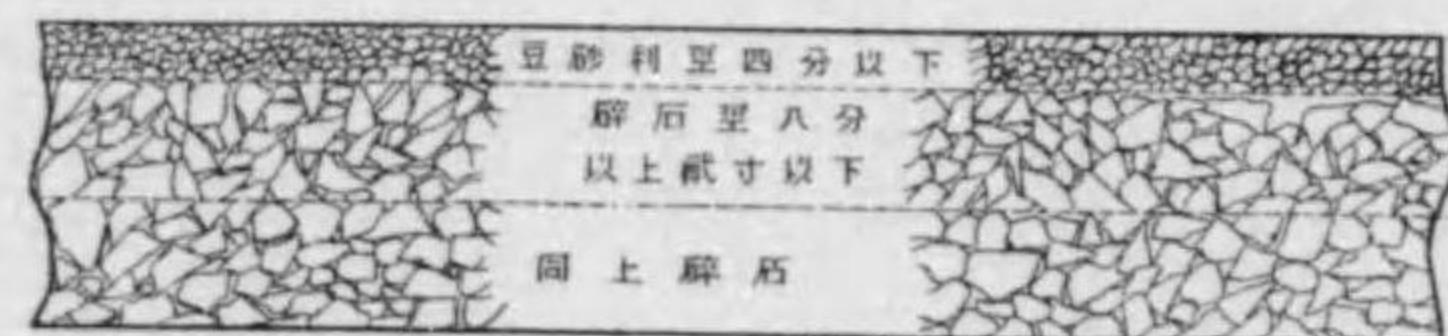 豆砂利至四分以下
礔石至八分
以上貳寸以下
同上礔石